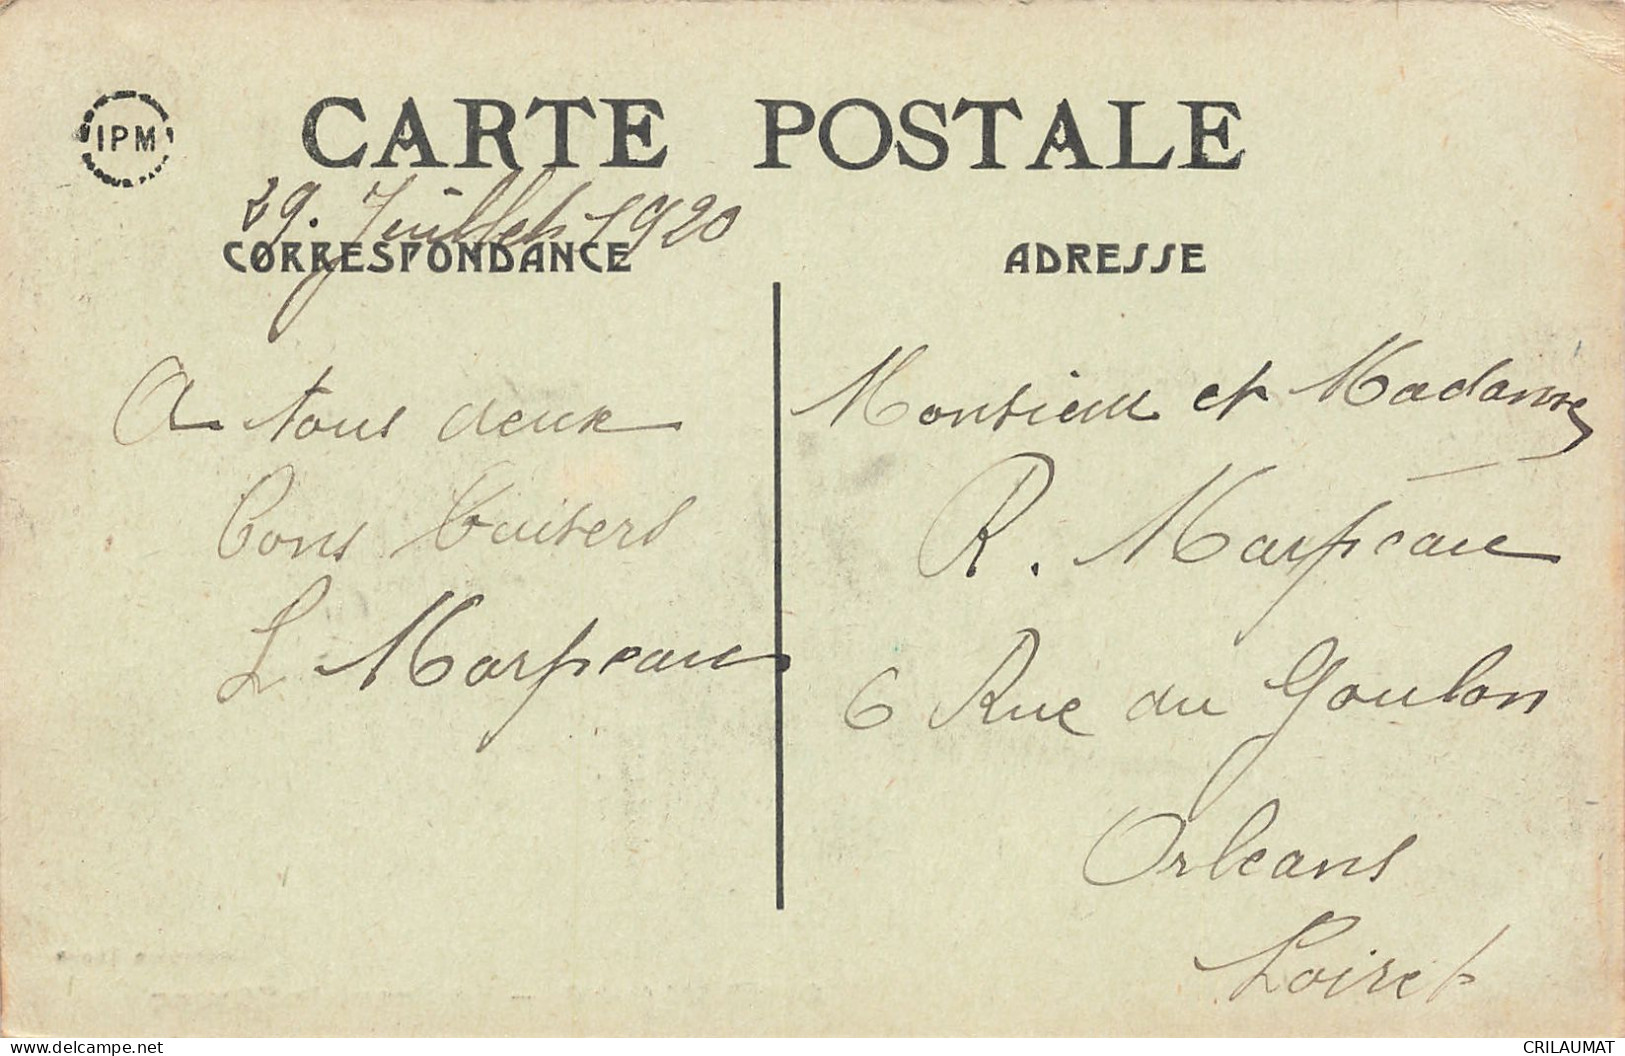 IPM
CARTE POSTALE
29. Juillet 1920
CORRESPONDANCE
A tous deux
Bons baisers
L Marpeau
ADRESSE
Monsieur et Madame
R. Marpeau
6 Rue du Goulon
Orleans
Loiret
CRILAUMAT
www.delcampe.net